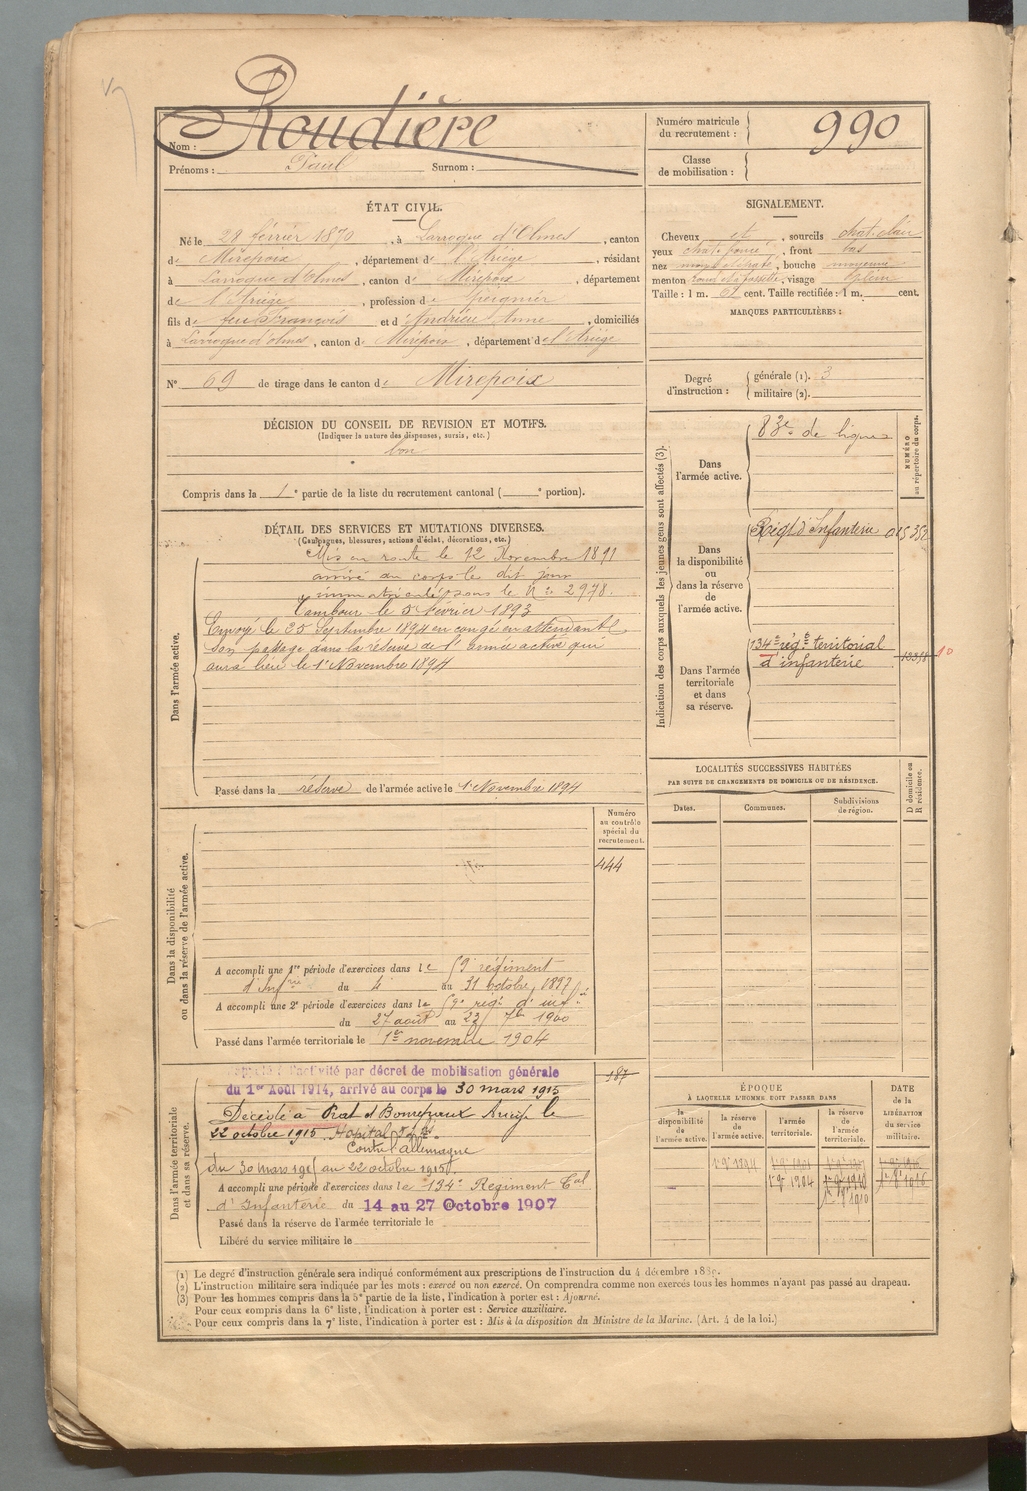 Roudière
Nom :
Prénoms : Paul Surnom :
Numéro matricule
du recrutement : 990
Classe
de mobilisation :
ÉTAT CIVIL.
Né le 28 février 1870, à Laroque d'Olmes, canton
de Mirepoix, département de l'Ariège, résidant
à Laroque d'Olmes, canton de Mirepoix, département
de l'Ariège, profession de peignier
fils de feu François et d'Andrieu Anne, domiciliés
à Laroque d'Olmes, canton de Mirepoix, département de l'Ariège
N° 69 de tirage dans le canton de Mirepoix
SIGNALEMENT.
Cheveux et, sourcils chat. clair
yeux chat. foncé, front bas
nez, bouche moyenne
menton rond et à fossette, visage plein
Taille : 1 m. cent. Taille rectifiée : 1 m. cent.
MARQUES PARTICULIÈRES :
Degré
d'instruction :
générale (1). 3
militaire (2).
DÉCISION DU CONSEIL DE REVISION ET MOTIFS.
(Indiquer la nature des dispenses, sursis, etc.)
bon
Compris dans la 1e partie de la liste du recrutement cantonal ( e portion).
DÉTAIL DES SERVICES ET MUTATIONS DIVERSES.
(Campagnes, blessures, actions d'éclat, décorations, etc.)
Dans l'armée active.
Mis en route le 12 Novembre 1891
arrivé au corps le dit jour
immatriculé sous le N° 2978.
Tambour le 5 février 1893
Envoyé le 25 Septembre 1894 en congé en attendant
son passage dans la réserve de l'armée active qui
aura lieu le 1er Novembre 1894
Passé dans la réserve de l'armée active le 1er Novembre 1894
Indication des corps auxquels les jeunes gens sont affectés (3).
NUMÉRO
au répertoire du corps.
Dans
l'armée active.
83e de ligne
Dans
la disponibilité
ou
dans la réserve
de
l'armée active.
Régt d'Infanterie 015352
Dans l'armée
territoriale
et dans
sa réserve.
134e régt territorial
d'infanterie
LOCALITÉS SUCCESSIVES HABITÉES
PAR SUITE DE CHANGEMENTS DE DOMICILE OU DE RÉSIDENCE.
Dates.
Communes.
Subdivisions
de région.
D domicile ou
R résidence.
Dans la disponibilité
ou dans la réserve de l'armée active.
Numéro
au contrôle
spécial du
recrutement.
444
A accompli une 1re période d'exercices dans le 59e régiment
d'Infrie du 4 au 31 octobre 1897
A accompli une 2e période d'exercices dans le 59e régt d'inf
du 27 août au 23 7bre 1900
Passé dans l'armée territoriale le 1er novembre 1904
Dans l'armée territoriale
et dans sa réserve.
187
Rappelé à l'activité par décret de mobilisation générale
du 1er Août 1914, arrivé au corps le 30 mars 1915
Décédé à Prat et Bonrepaux Ariège le
22 octobre 1915 Hôpital
Contre l'Allemagne
du 30 mars 1915 au 22 octobre 1915.
A accompli une période d'exercices dans le 134e Régiment Tal
d'Infanterie du 14 au 27 Octobre 1907
Passé dans la réserve de l'armée territoriale le
Libéré du service militaire le
ÉPOQUE
À LAQUELLE L'HOMME DOIT PASSER DANS
la
disponibilité
de
l'armée active.
la réserve
de
l'armée active.
l'armée
territoriale.
la réserve
de
l'armée
territoriale.
DATE
de la
LIBÉRATION
du service
militaire.
1er 9bre 1894
1er 9bre 1904
(1) Le degré d'instruction générale sera indiqué conformément aux prescriptions de l'instruction du 4 décembre 1889.
(2) L'instruction militaire sera indiquée par les mots : exercé ou non exercé. On comprendra comme non exercés tous les hommes n'ayant pas passé au drapeau.
(3) Pour les hommes compris dans la 5e partie de la liste, l'indication à porter est : Ajourné.
Pour ceux compris dans la 6e liste, l'indication à porter est : Service auxiliaire.
Pour ceux compris dans la 7e liste, l'indication à porter est : Mis à la disposition du Ministre de la Marine. (Art. 4 de la loi.)